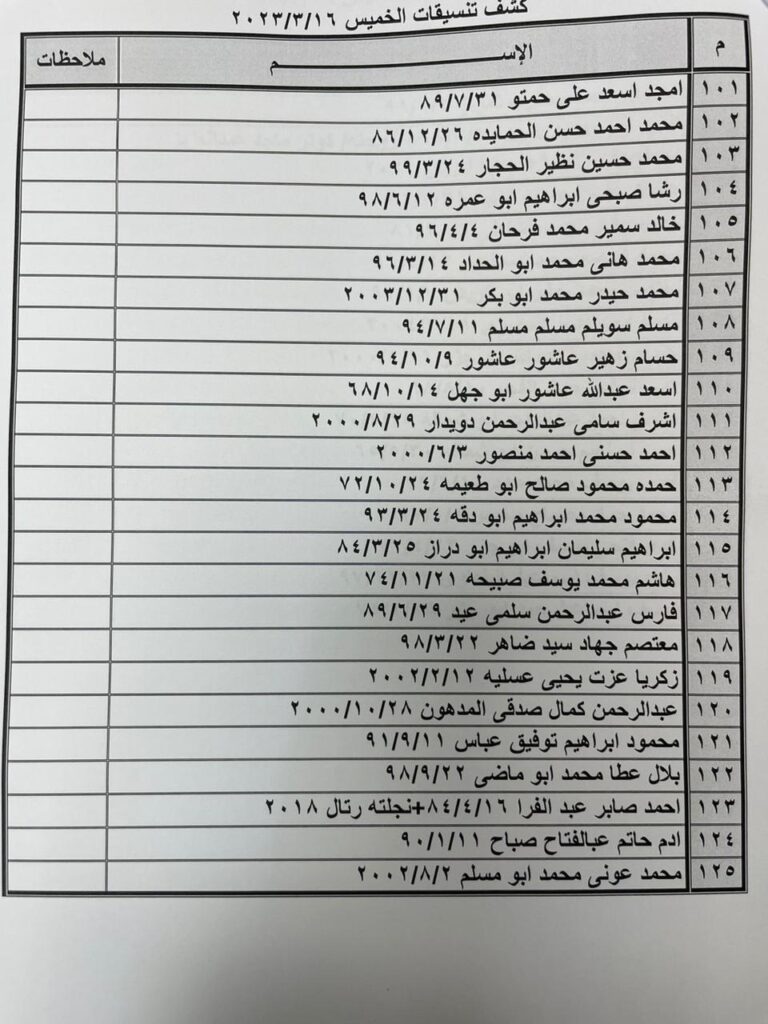 كشف تنسيقات الخميس ٢٠٢٣/٣/١٦
م الإســـــــم ملاحظات
١٠١ امجد اسعد على حمتو ٨٩/٧/٣١
١٠٢ محمد احمد حسن الحمايده ٨٦/١٢/٢٦
١٠٣ محمد حسين نظير الحجار ٩٩/٣/٢٤
١٠٤ رشا صبحى ابراهيم ابو عمره ٩٨/٦/١٢
١٠٥ خالد سمير محمد فرحان ٩٦/٤/٤
١٠٦ محمد هانى محمد ابو الحداد ٩٦/٣/١٤
١٠٧ محمد حيدر محمد ابو بكر ٢٠٠٣/١٢/٣١
١٠٨ مسلم سويلم مسلم مسلم ٩٤/٧/١١
١٠٩ حسام زهير عاشور عاشور ٩٤/١٠/٩
١١٠ اسعد عبدالله عاشور ابو جهل ٦٨/١٠/١٤
١١١ اشرف سامى عبدالرحمن دويدار ٢٠٠٠/٨/٢٩
١١٢ احمد حسنى احمد منصور ٢٠٠٠/٦/٣
١١٣ حمده محمود صالح ابو طعيمه ٧٢/١٠/٢٤
١١٤ محمود محمد ابراهيم ابو دقه ٩٣/٣/٢٤
١١٥ ابراهيم سليمان ابراهيم ابو دراز ٨٤/٣/٢٥
١١٦ هاشم محمد يوسف صبيحه ٧٤/١١/٢١
١١٧ فارس عبدالرحمن سلمى عيد ٨٩/٦/٢٩
١١٨ معتصم جهاد سيد ضاهر ٩٨/٣/٢٢
١١٩ زكريا عزت يحيى عسليه ٢٠٠٢/٢/١٢
١٢٠ عبدالرحمن كمال صدقى المدهون ٢٠٠٠/١٠/٢٨
١٢١ محمود ابراهيم توفيق عباس ٩١/٩/١١
١٢٢ بلال عطا محمد ابو ماضى ٩٨/٩/٢٢
١٢٣ احمد صابر عبد الفرا ٨٤/٤/١٦+نجلته رتال ٢٠١٨
١٢٤ ادم حاتم عبالفتاح صباح ٩٠/١/١١
١٢٥ محمد عونى محمد ابو مسلم ٢٠٠٢/٨/٢